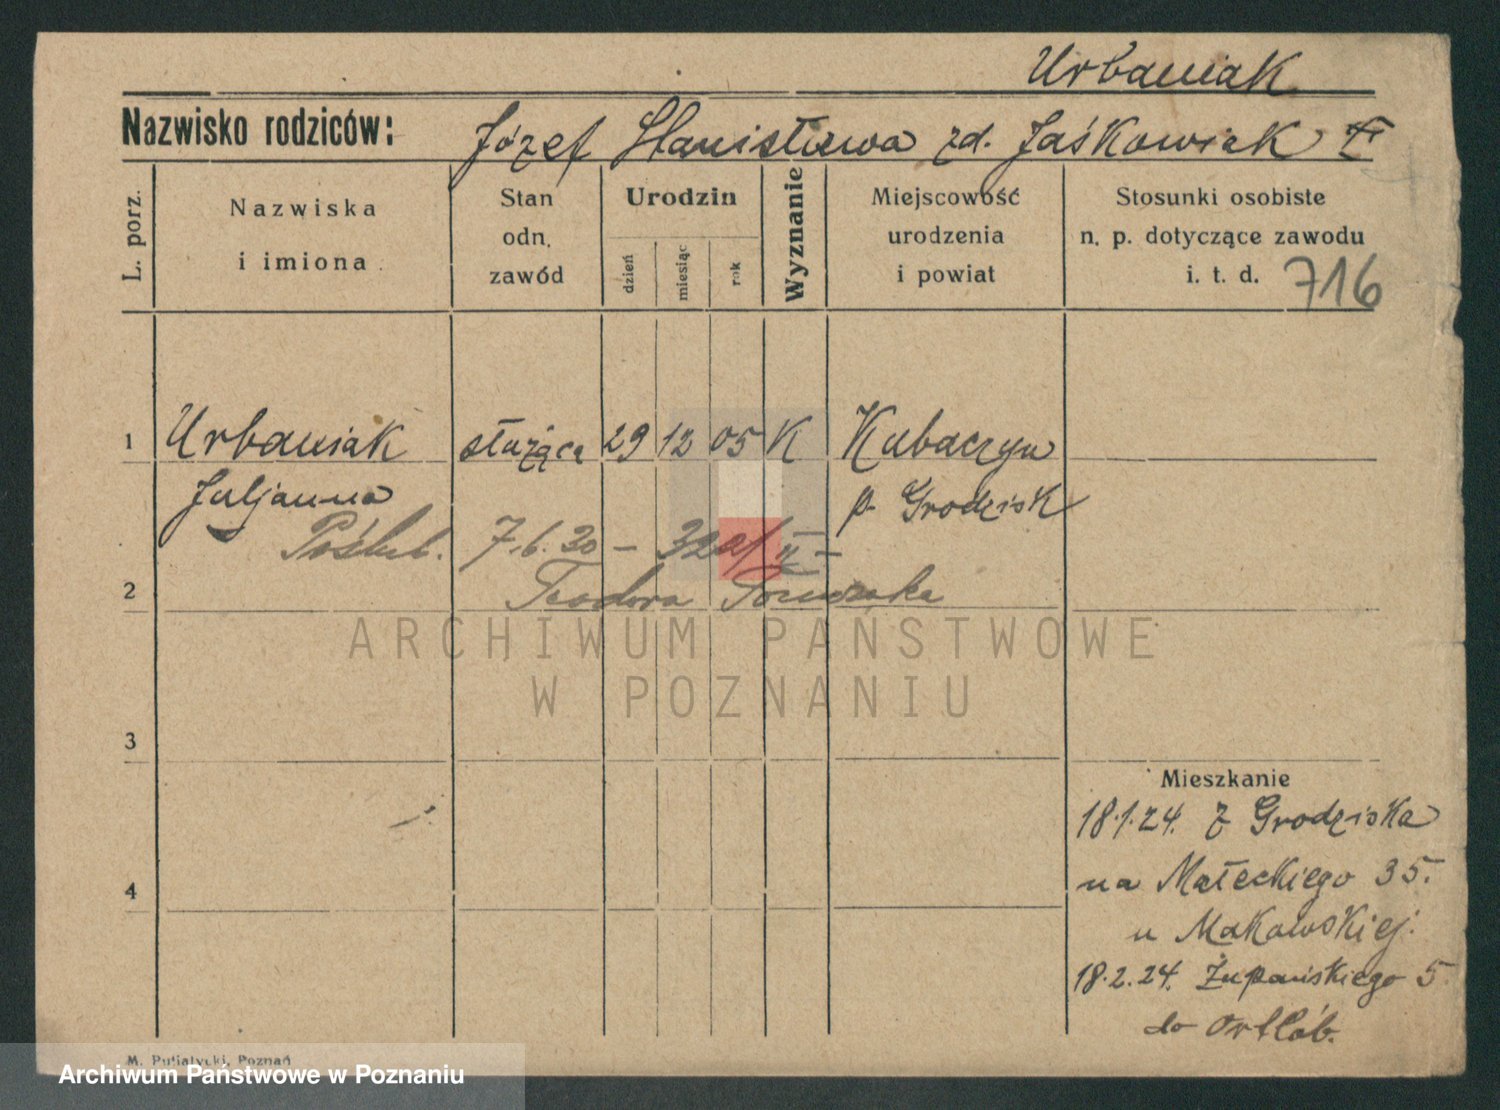 Urbaniak
Nazwisko rodziców: Józef Stanisława zd. Jaśkowiak
L. porz.
Nazwiska i imiona
Stan odn. zawód
Urodzin
dzień
miesiąc
rok
Wyznanie
Miejscowość urodzenia i powiat
Stosunki osobiste n. p. dotyczące zawodu i. t. d.
716
1 Urbaniak służąca 29 12 05 K Kubaczyn
Juljanna p. Grodzisk
Poślub. 7.6.30 —
2 Teodora
3
4
Mieszkanie
18.1.24. z Grodziska
na Małeckiego 35.
u Makowskiej.
18.2.24. Żupańskiego 5
do
M. Putiatycki, Poznań
ARCHIWUM PAŃSTWOWE
W POZNANIU
Archiwum Państwowe w Poznaniu